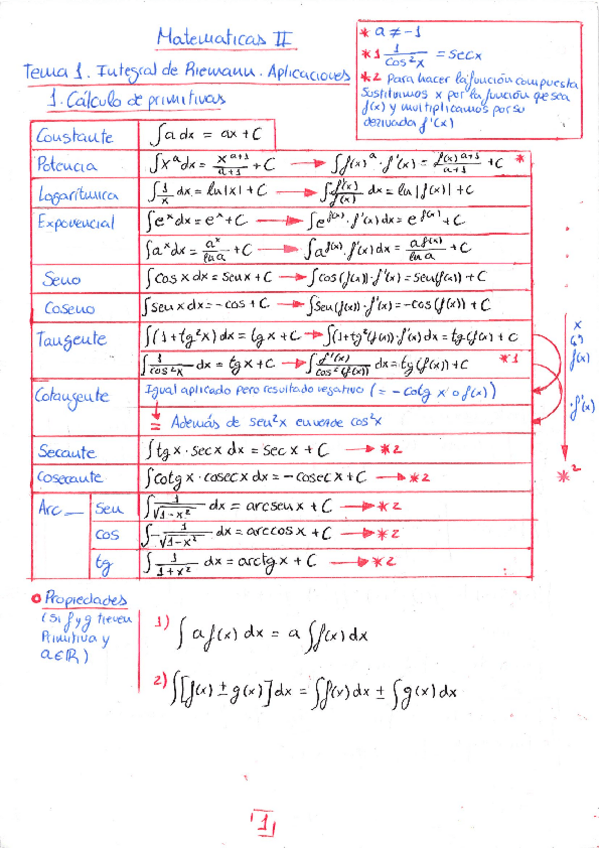 Matematicas II
Tema 1. Integral de Riemann. Aplicaciones
1. Cálculo de primitivas
* a ≠ -1
*1 1/cos²x = secx
*2 Para hacer la función compuesta
sustituimos x por la función que sea
f(x) y multiplicamos por su
derivada f'(x)
Constante ∫a dx = ax + C
Potencia ∫x^a dx = x^(a+1)/(a+1) + C → ∫f(x)^a · f'(x) = f(x)^(a+1)/(a+1) + C *
Logarítmica ∫1/x dx = ln|x| + C → ∫f'(x)/f(x) dx = ln|f(x)| + C
Exponencial ∫e^x dx = e^x + C → ∫e^f(x) · f'(x) dx = e^f(x) + C
∫a^x dx = a^x/ln a + C → ∫a^f(x) · f'(x) dx = a^f(x)/ln a + C
Seno ∫cos x dx = sen x + C → ∫cos(f(x)) · f'(x) = sen(f(x)) + C
Coseno ∫sen x dx = -cos + C → ∫sen(f(x)) · f'(x) = -cos(f(x)) + C
Tangente ∫(1+tg²x) dx = tg x + C → ∫(1+tg²(f(x)) · f'(x) dx = tg(f(x) + C
∫1/cos²x dx = tg x + C → ∫f'(x)/cos²(f(x)) dx = tg(f(x)) + C *1
x
f(x)
· f'(x)
*2
Cotangente Igual aplicado pero resultado negativo (= -cotg x o f(x))
= Además de sen²x en vez de cos²x
Secante ∫tg x · sec x dx = sec x + C → *2
Cosecante ∫cotg x · cosec x dx = -cosec x + C → *2
Arc_ sen ∫1/√(1-x²) dx = arcsen x + C → *2
cos ∫-1/√(1-x²) dx = arccos x + C → *2
tg ∫1/(1+x²) dx = arctg x + C → *2
Propiedades
(Si f y g tienen
Primitiva y
a∈ℝ)
1) ∫a f(x) dx = a ∫f(x) dx
2) ∫[f(x) ± g(x)] dx = ∫f(x) dx ± ∫g(x) dx
1